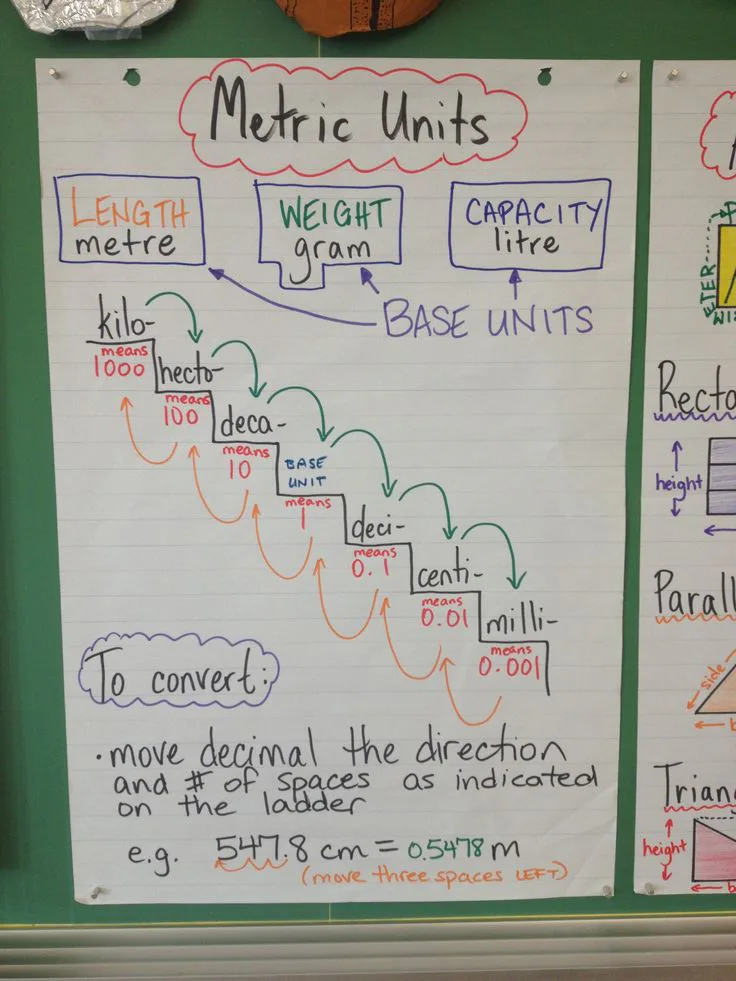 Metric Units
LENGTH
metre
WEIGHT
gram
CAPACITY
litre
BASE UNITS
kilo-
means
1000
hecto-
means
100
deca-
means
10
BASE
UNIT
means
1
deci-
means
0.1
centi-
means
0.01
milli-
means
0.001
To convert:
• move decimal the direction
and # of spaces as indicated
on the ladder
e.g. 547.8 cm = 0.5478 m
(move three spaces LEFT)
ETER
Recta
height
Parall
side
b
Triang
height
b